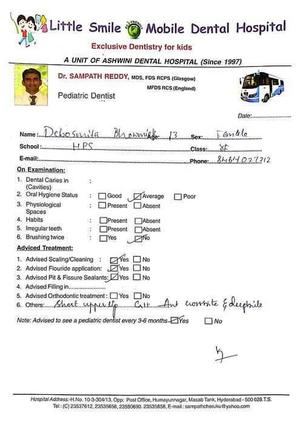 Little Smile Mobile Dental Hospital
Exclusive Dentistry for kids
A UNIT OF ASHWINI DENTAL HOSPITAL (Since 1997)
Dr. SAMPATH REDDY, MDS, FDS RCPS (Glasgow)
MFDS RCS (England)
Pediatric Dentist
Date:
Name: Debosmita 13 Sex:
School: HPS Class:
E-mail: Phone:
On Examination:
1. Dental Caries in :
(Cavities)
2. Oral Hygiene Status : Good Average Poor
3. Physiological : Present Absent
Spaces
4. Habits : Present Absent
5. Irregular teeth : Present Absent
6. Brushing twice : Yes No
Adviced Treatment:
1. Advised Scaling/Cleaning : Yes No
2. Advised Flouride application: Yes No
3. Advised Pit & Fissure Sealants: Yes No
4. Advised Filling in
5. Advised Orthodontic treatment : Yes No
6. Others: Short upper lip Ant &
Note: Advised to see a pediatric dentist every 3-6 months Yes No
Hospital Address: H.No. 10-3-304/13, Opp: Post Office, Humayunnagar, Masab Tank, Hyderabad - 500 028 T.S.
Tel: (C) 23537612, 23535658, 23590690, 23535858, E-mail : sampathcheruku@yahoo.com